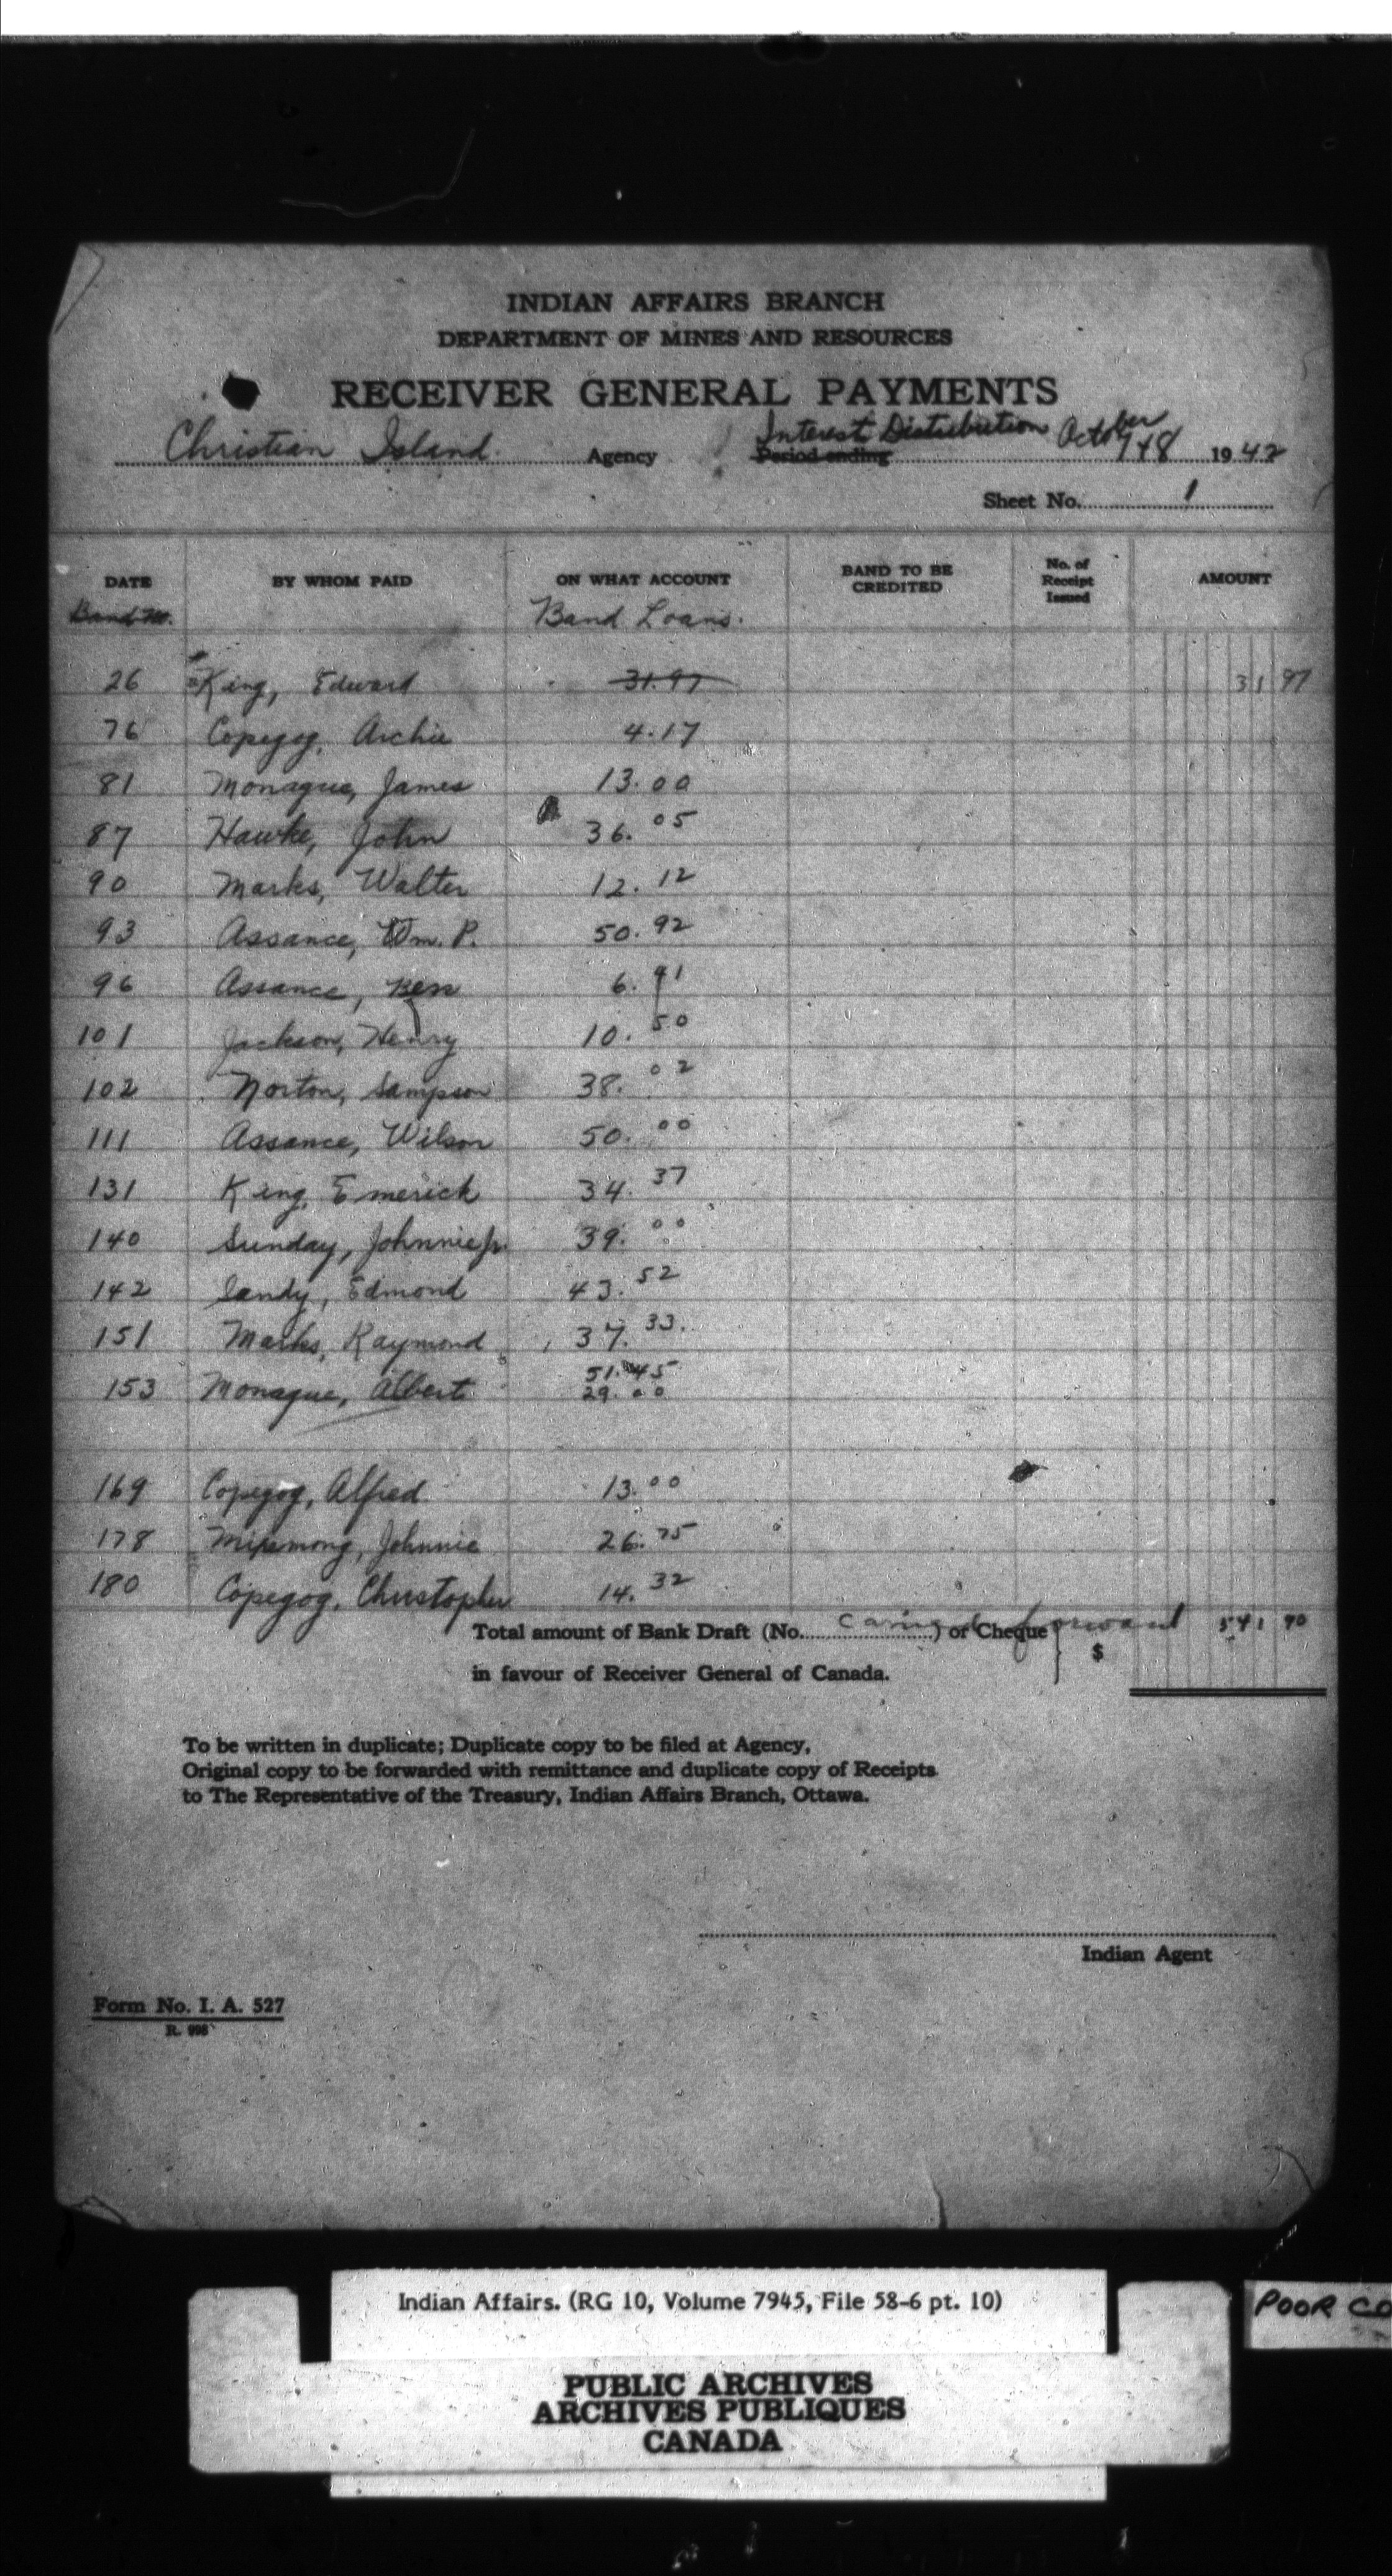 INDIAN AFFAIRS BRANCH
DEPARTMENT OF MINES AND RESOURCES
RECEIVER GENERAL PAYMENTS
Christian Island. Agency Interest Distribution October 7+8 1942
Period ending
Sheet No. 1
DATE BY WHOM PAID ON WHAT ACCOUNT BAND TO BE CREDITED No. of Receipt Issued AMOUNT
Band No. Band Loans.
26 King, Edward 31.97 31 97
76 Copegog, Archie 4.17
81 Monague, James 13.00
87 Hawke, John 36.05
90 Marks, Walter 12.12
93 Assance, Wm. P. 50.92
96 Assance, 6.91
101 Jackson, Henry 10.50
102 Norton, Sampson 38.02
111 Assance, Wilson 50.00
131 King, Emerick 34.37
140 Sunday, Johnnie Jr. 39.00
142 Sandy, Edmond 43.52
151 Marks, Raymond 37.33.
153 Monague, Albert 51.45
29.00
169 Copegog, Alfred 13.00
178 Johnnie 26.75
180 Copegog, Christopher 14.32
Total amount of Bank Draft (No. ) or Cheque forward 541 90
in favour of Receiver General of Canada. $
To be written in duplicate; Duplicate copy to be filed at Agency,
Original copy to be forwarded with remittance and duplicate copy of Receipts
to The Representative of the Treasury, Indian Affairs Branch, Ottawa.
Indian Agent
Form No. I. A. 527
R. 998
Indian Affairs. (RG 10, Volume 7945, File 58-6 pt. 10)
POOR CO
PUBLIC ARCHIVES
ARCHIVES PUBLIQUES
CANADA